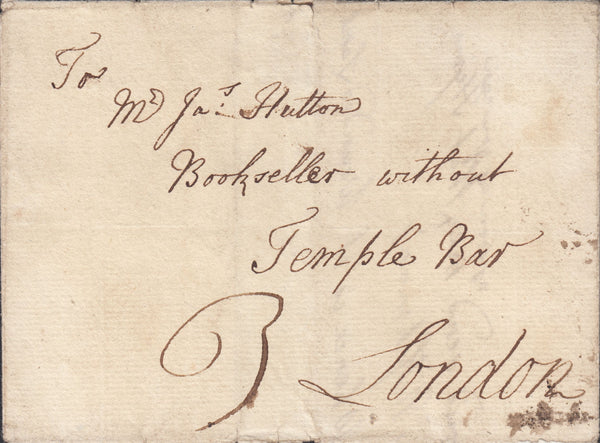 To
Mr Jas: Hutton
Bookseller without
Temple Bar
3 London